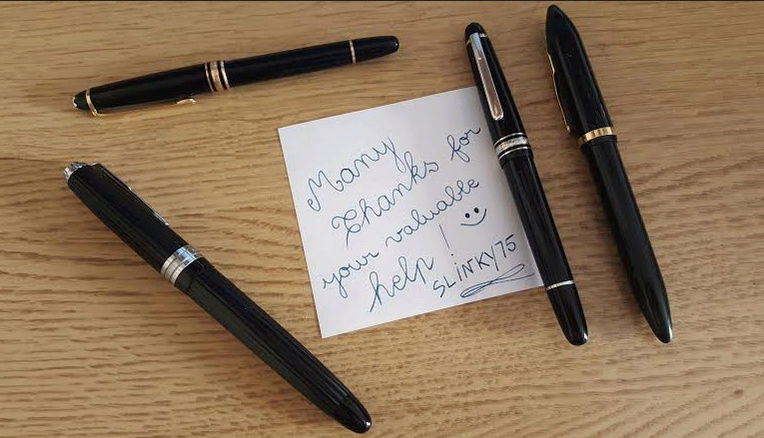 Many
Thanks for
your valuable
help!
SLINKY75